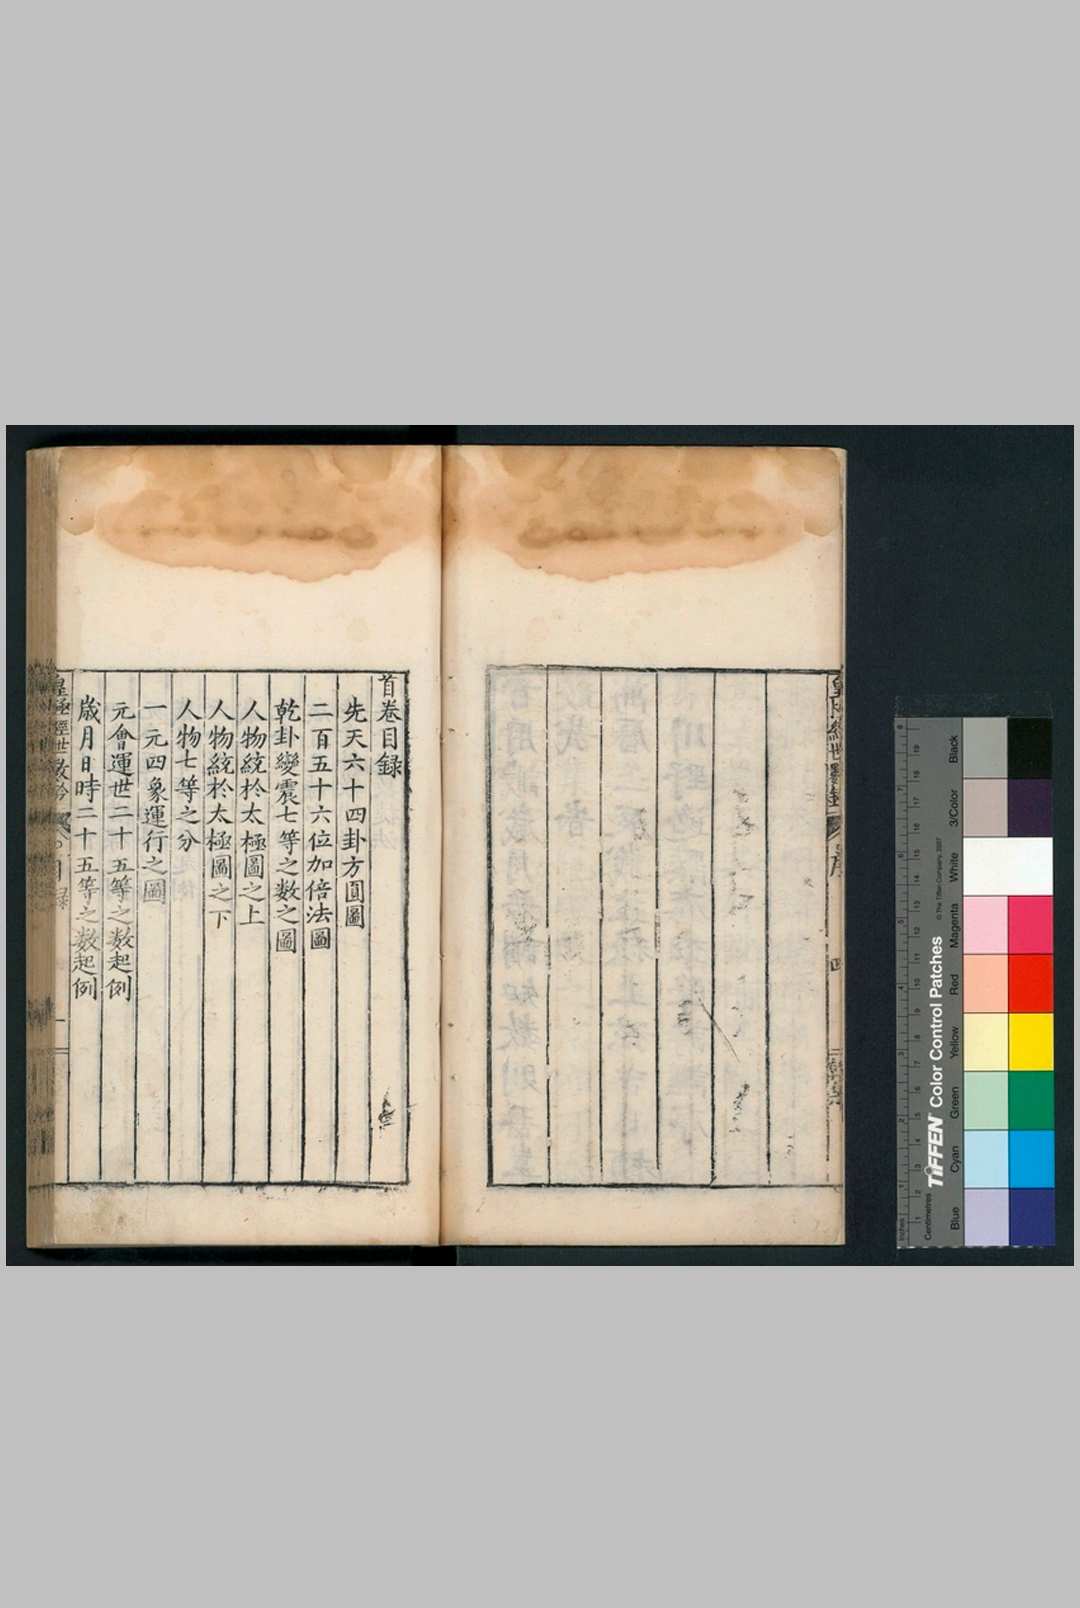 首卷目録
先天六十四卦方圓圖
二百五十六位加倍法圖
乾卦變震七等之數之圖
人物統於太極圖之上
人物統於太極圖之下
人物七等之分
一元四象運行之圖
元會運世二十五等之數起例
歳月日時二十五等之数起例
皇極經世
目録
一
四
TIFFEN Color Control Patches
© The Tiffen Company, 2007
Inches
Centimetres
Blue
Cyan
Green
Yellow
Red
Magenta
White
3/Color
Black